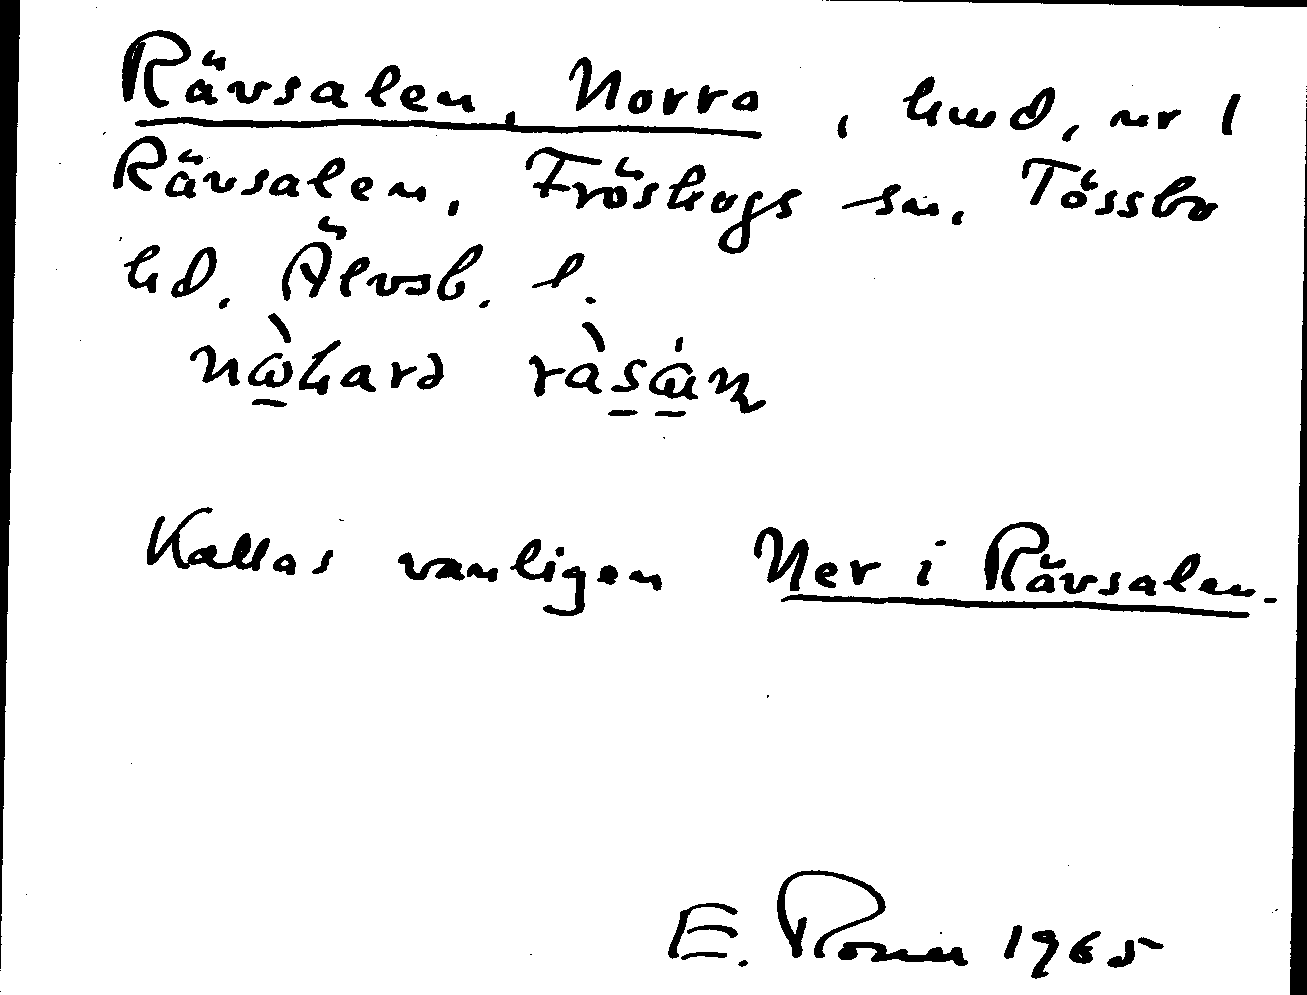 Rävsalen, Norra, hmd, nr 1
Rävsalen, Fröskogs sn, Tössbo
hd. Älvsb. l.
Kallas vanligen Ner i Rävsalen.
E. Rosén 1965